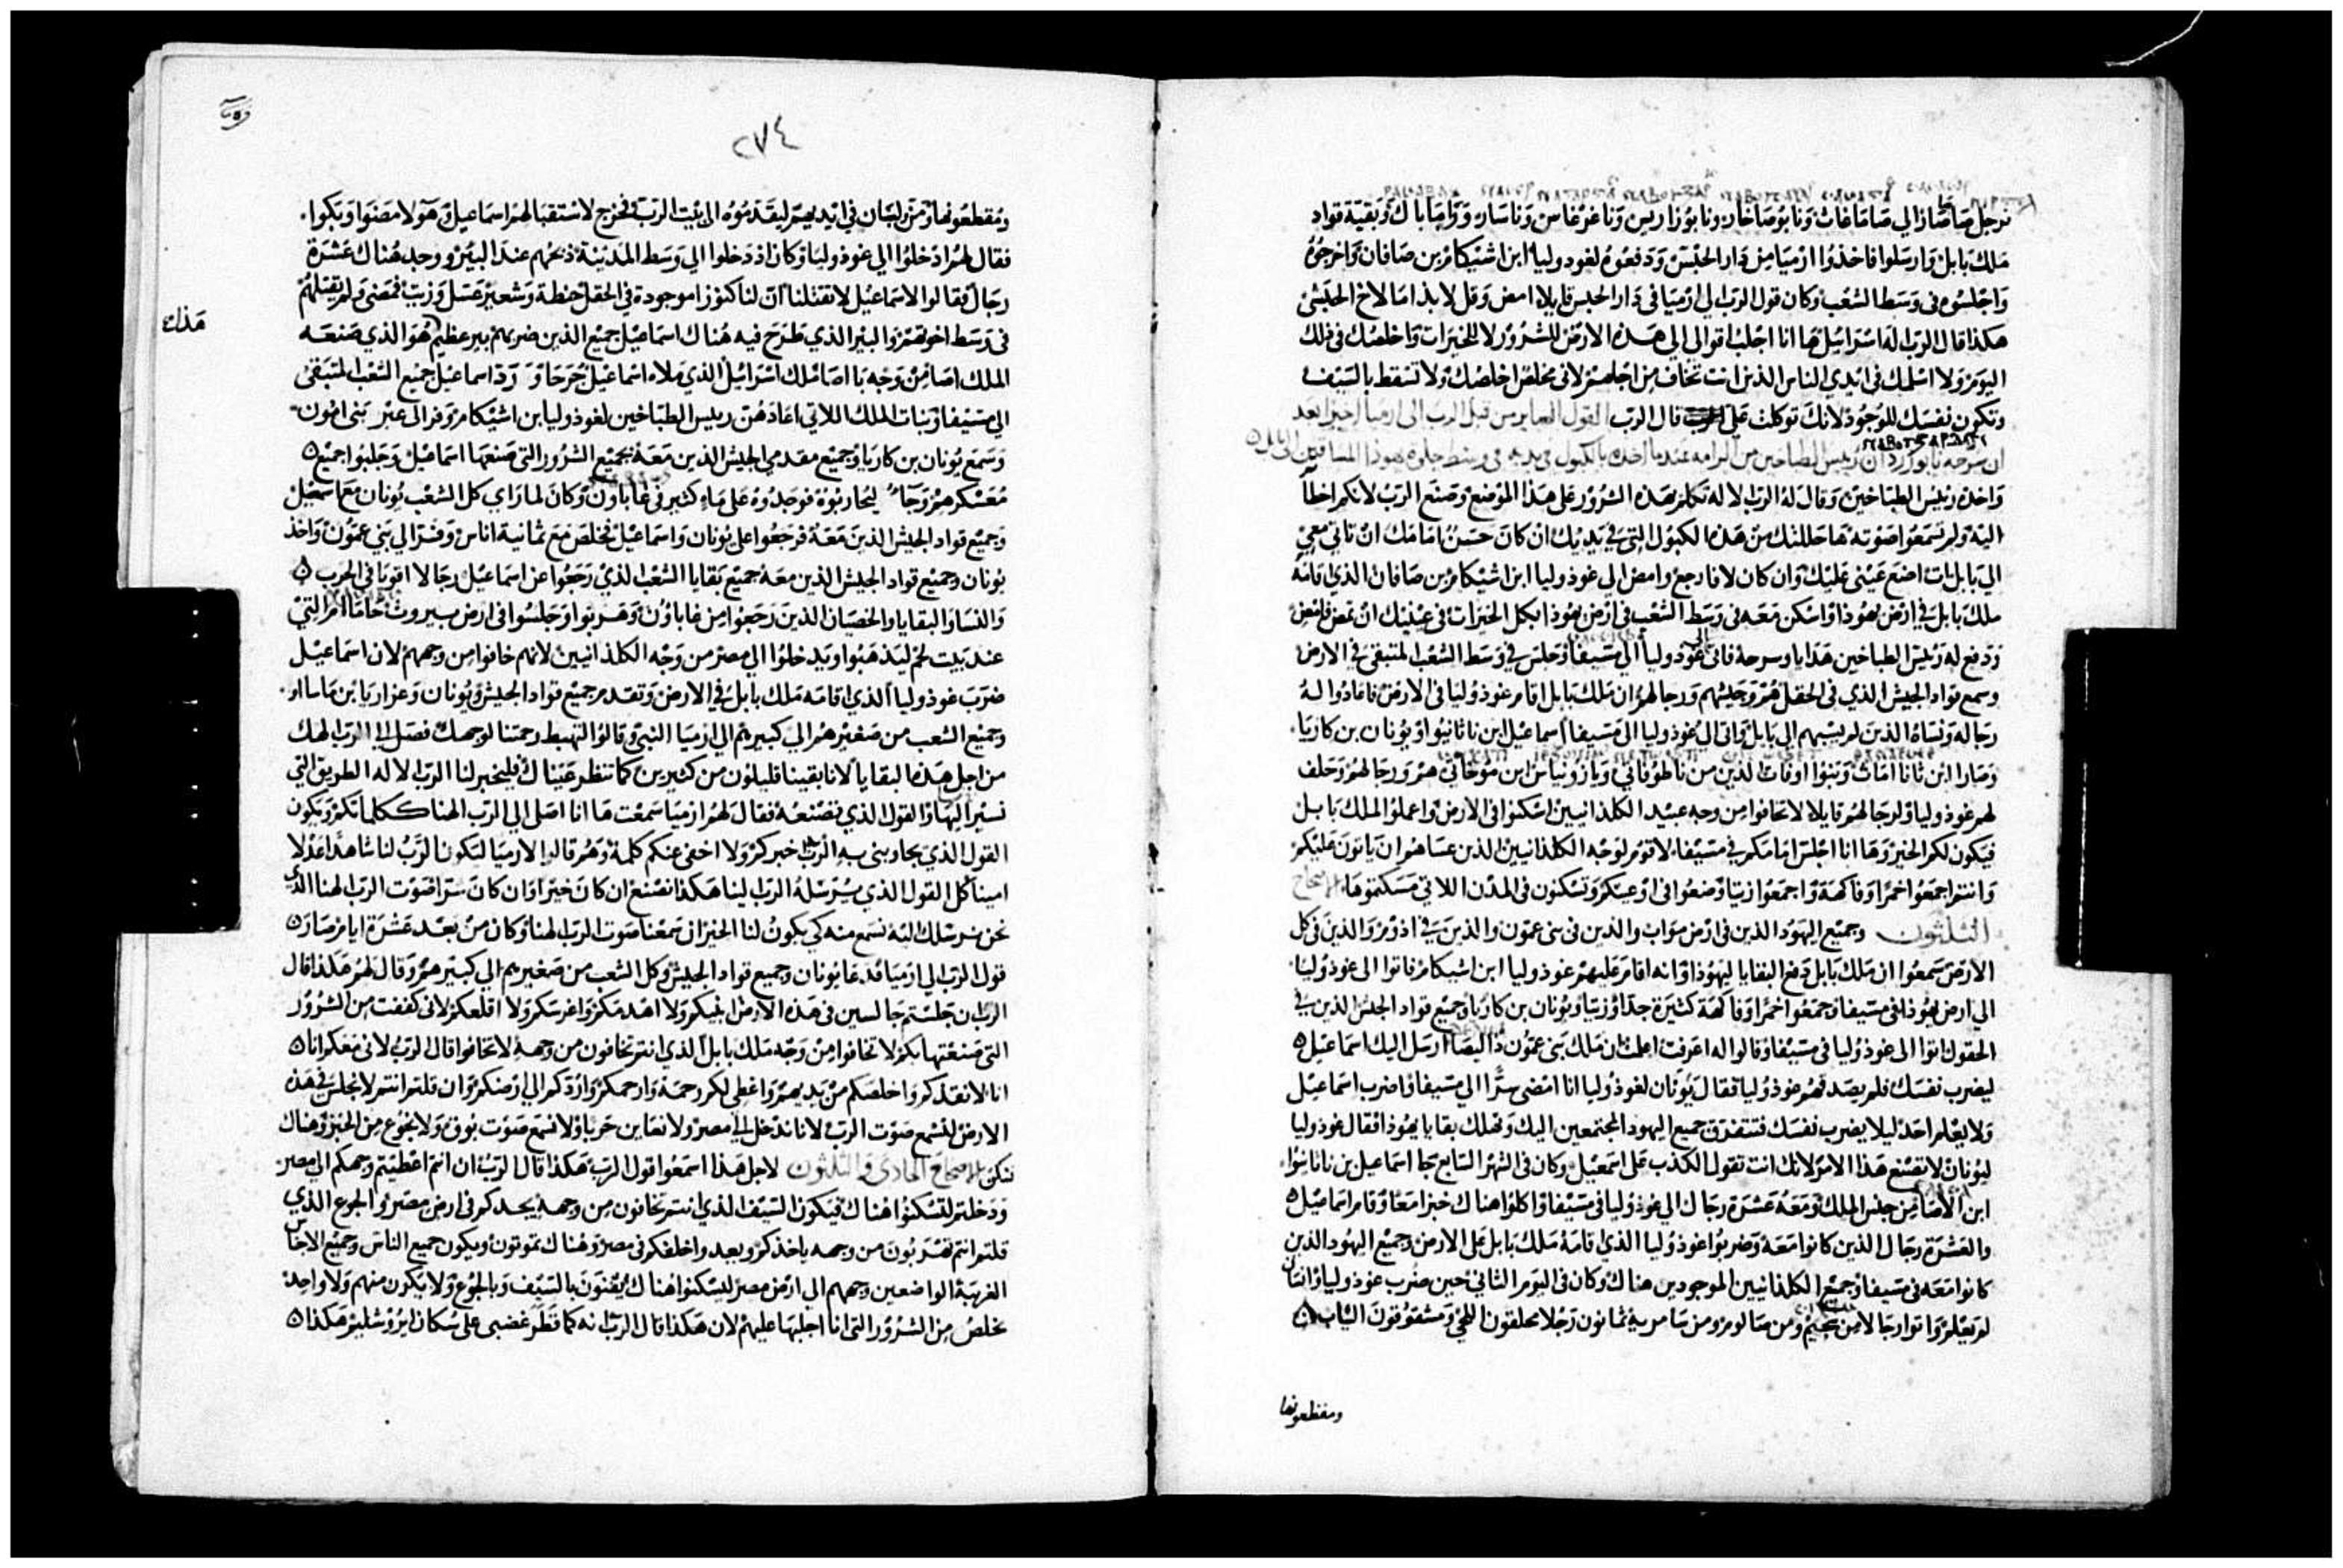 نرجل صاصار الي صاماغاث ونابوصاخار ونابوزاريس وناغرغاس وناسار وراماباك وبقية قواد
ملك بابل وارسلوا فاخذوا ارميا من دار الحبس ودفعوه لغودوليا ابن اشيكام بن صافان واخرجوه
واجلسوه في وسط الشعب وكان قول الرب الي ارميا في دار الحبس قايلا امض وقل لابذامالاخ الحبشي
هكذا قال الرب اله اسرائيل ها انا اجلب اقوالي الي هذه الارض للشرور لا للخيرات واخلصك في ذلك
اليوم ولا اسلمك في ايدي الناس الذين انت تخاف من اجلهم لاني مخلص اخلصك ولا تسقط بالسيف
وتكون نفسك للوجود لانك توكلت علي قال الرب القول الصاير من قبل الرب الي ارميا اخيرا بعد
ان سرحه نابوزردان رئيس الطباخين من الرامه عندما اخذه بالكبول في يديه في وسط جلوة يهوذا المساقين الي بابل
واخذه رئيس الطباخين وقال له الرب الاله تكلم بهذه الشرور علي هذا الموضع وصنع الرب لانكم اخطأ
اليه ولم تسمعوا صوته ها حللتك من هذه الكبول التي في يديك ان كان حسنا امامك ان تاتي معي
الي بابل ات اضع عيني عليك وان كان لا فارجع وامض الي غودوليا ابن اشيكام بن صافان الذي قامه
ملك بابل في ارض يهوذا واسكن معه في وسط الشعب في ارض يهوذا بكل الخيرات في عينيك ان تمض فامض
ودفع له رئيس الطباخين هدايا وسرحه فاتي الي غودوليا الي مسيفا وجلس في وسط الشعب المتبقي في الارض
وسمع قواد الجيش الذي في الحقل هم وجيشهم ورجالهم ان ملك بابل اقام غودوليا في الارض فاعادوا له
رجاله ونساه الذين لم يسبهم الي بابل واتي الي غودوليا الي مسيفا اسماعيل ابن ناثانيوا ويونان بن كاريا
وصارا ابن ثانا اماث وبنوا اوفات الذين من ناطوفاتي ويازونياس ابن موخاتي هم ورجالهم وحلف
لهم غودوليا ولرجالهم قايلا لا تخافوا من وجه عبيد الكلدانيين اسكنوا في الارض واعملوا لملك بابل
فيكون لكم الخير وها انا اجلس امامكم في مسيفا لاقوم لوجه الكلدانيين الذين عساهم ان ياتون عليكم
وانتم اجمعوا خمرا وفاكهة واجمعوا زيتا وضعوا في اوعيتكم وتسكنون في المدن اللاتي مسكتموها الاصحاح
الثلثون وجميع اليهود الذين في ارض مواب والذين في بني عمون والذين في ادوم والذين في كل
الارض سمعوا ان ملك بابل دفع البقايا ليهوذا وانه اقام عليهم غودوليا ابن اشيكام فاتوا الي غودوليا
الي ارض يهوذا في مسيفا وجمعوا خمرا وفاكهة كثيرة جدا وزيتا ويونان بن كاريا وجميع قواد الجيش الذين في
الحقول اتوا الي غودوليا في مسيفا وقالوا له اعرفت ان ملك بني عمون ارسل اليك اسماعيل
ليضرب نفسك فلم يصدقهم غودوليا فقال يونان لغودوليا انا امضي سرا الي مسيفا واضرب اسماعيل
ولا يعلم احد ليلا يضرب نفسك فتتفرق جميع اليهود المجتمعين اليك وتهلك بقايا يهوذا فقال غودوليا
ليونان لا تصنع هذا الامر لانك انت تقول الكذب علي اسمعيل وكان في الشهر السابع جا اسماعيل بن ناثانيوا
ابن الاصا من جنس الملك ومعه عشرة رجال الي غودوليا في مسيفا واكلوا هناك خبزا معا وقام اسماعيل
والعشرة رجال الذين كانوا معه وضربوا غودوليا الذي اقامه ملك بابل علي الارض وجميع اليهود الذين
كانوا معه في مسيفا وجميع الكلدانيين الموجودين هناك وكان في اليوم الثاني حين ضرب غودوليا وانسان
لم يعلم واتوا رجالا من سخيم ومن سالوم ومن سامرية ثمانون رجلا محلقون اللحي ومشقوقون الثياب
ومقطعونها
٢٧٤
ومقطعونها ومن ولبان في ايديهم ليقدموه الي بيت الرب فخرج لاستقبالهم اسماعيل وهولا مضوا وبكوا
فقال لهم ادخلوا الي غودوليا وكان اذ دخلوا الي وسط المدينة ذبحهم عند البئر ووجد هناك عشرة
رجال فقالوا لاسماعيل لا تقتلنا ان لنا كنوزا موجودة في الحقل حنطة وشعير عسل وزيت فمضي ولم يقتلهم
في وسط اخوتهم والبير الذي طرح فيه هناك اسماعيل جميع الذين ضربهم بير عظيم هو الذي صنعه
هذاك
الملك اصا من وجه بااصا ملك اسرائيل الذي ملاه اسماعيل جرحا ورد اسماعيل جميع الشعب المتبقي
الي مسيفا وبنات الملك اللاتي اعادهن رييس الطباخين لغودوليا بن اشيكام وفر الي عبر بني امون
وسمع يونان بن كاريا وجميع مقدمي الجيش الذين معه بجميع الشرور التي صنعها اسماعيل وجلبوا جميع
معسكرهم وجاء ليحاربوه فوجدوه علي ماء كثير في غاباون وكان لما راي كل الشعب يونان مع اسمعيل
وجميع قواد الجيش الذين معه فرجعوا علي يونان واسماعيل تخلص مع ثمانية اناس وفر الي بني عمون واخذ
يونان وجميع قواد الجيش الذين معه جميع بقايا الشعب الذي رجعوا عن اسماعيل رجالا اقويا في الحرب
والنسا والبقايا والخصيان الذين رجعوا من غاباون وهربوا وجلسوا في ارض بيروث خاماام التي
عند بيت لحم ليذهبوا ويدخلوا الي مصر من وجه الكلدانيين لانهم خافوا من وجههم لان اسماعيل
ضرب غودوليا الذي اقامه ملك بابل في الارض وتقدم جميع قواد الجيش ويونان وعزاريا بن ماساو
وجميع الشعب من صغيرهم الي كبيرهم الي ارميا النبي وقالوا لتهبط رحمتنا لوجهك فصل الي الرب الهك
من اجل هذه البقايا لانا بقينا قليلون من كثيرين كما تنظر عيناك فليخبر لنا الرب الاله الطريق التي
نسير اليها والقول الذي نصنعه فقال لهم ارميا سمعت ها انا اصلي الي الرب الهنا ككلماتكم ويكون
القول الذي يجاوبني به الرب اخبركم ولا اخفي عنكم كلمة وهم قالوا لارميا ليكون الرب لنا شاهدا عدلا
امينا كل القول الذي يرسله الرب لينا هكذا نصنع ان كان خيرا وان كان شرا صوت الرب الهنا الذي
نحن نرسلك اليه نسمع منه كي يكون لنا الخير ان سمعنا صوت الرب الهنا وكان من بعد عشرة ايام صار
قول الرب الي ارميا فدعا يونان وجميع قواد الجيش وكل الشعب من صغيرهم الي كبيرهم وقال لهم هكذا قال
الرب ان جلستم جالسين في هذه الارض ابنيكم ولا اهدمكم واغرسكم ولا اقلعكم لاني كففت من الشرور
التي صنعتها بكم لا تخافوا من وجه ملك بابل الذي انتم تخافون من وجهه لا تخافوا قال الرب لاني معكم انا
انا لانقذكم واخلصكم من يديهم واعطي لكم رحمة وارحمكم واردكم الي ارضكم وان قلتم انتم لا نجلس في هذه
الارض لنسمع صوت الرب لانا ندخل الي مصر ولا نعاين حربا ولا نسمع صوت بوق ولا نجوع من الخبز وهناك
نسكن الاصحاح الحادي والثلثون لاجل هذا اسمعوا قول الرب هكذا قال الرب ان انتم اعطيتم وجهكم الي مصر
ودخلتم لتسكنوا هناك فيكون السيف الذي انتم تخافون من وجهه يجدكم في ارض مصر والجوع الذي
قلتم انتم تهربون من وجهه ياخذكم وبعد واخلفكم في مصر وهناك تموتون ويكون جميع الناس وجميع الاجناس
الغريبة الواضعين وجههم الي ارض مصر ليسكنوا هناك يفنون بالسيف وبالجوع ولا يكون منهم ولا واحد
يخلص من الشرور التي انا اجلبها عليهم لان هكذا قال الرب انه كما قطر غضبي علي سكان يروشليم هكذا